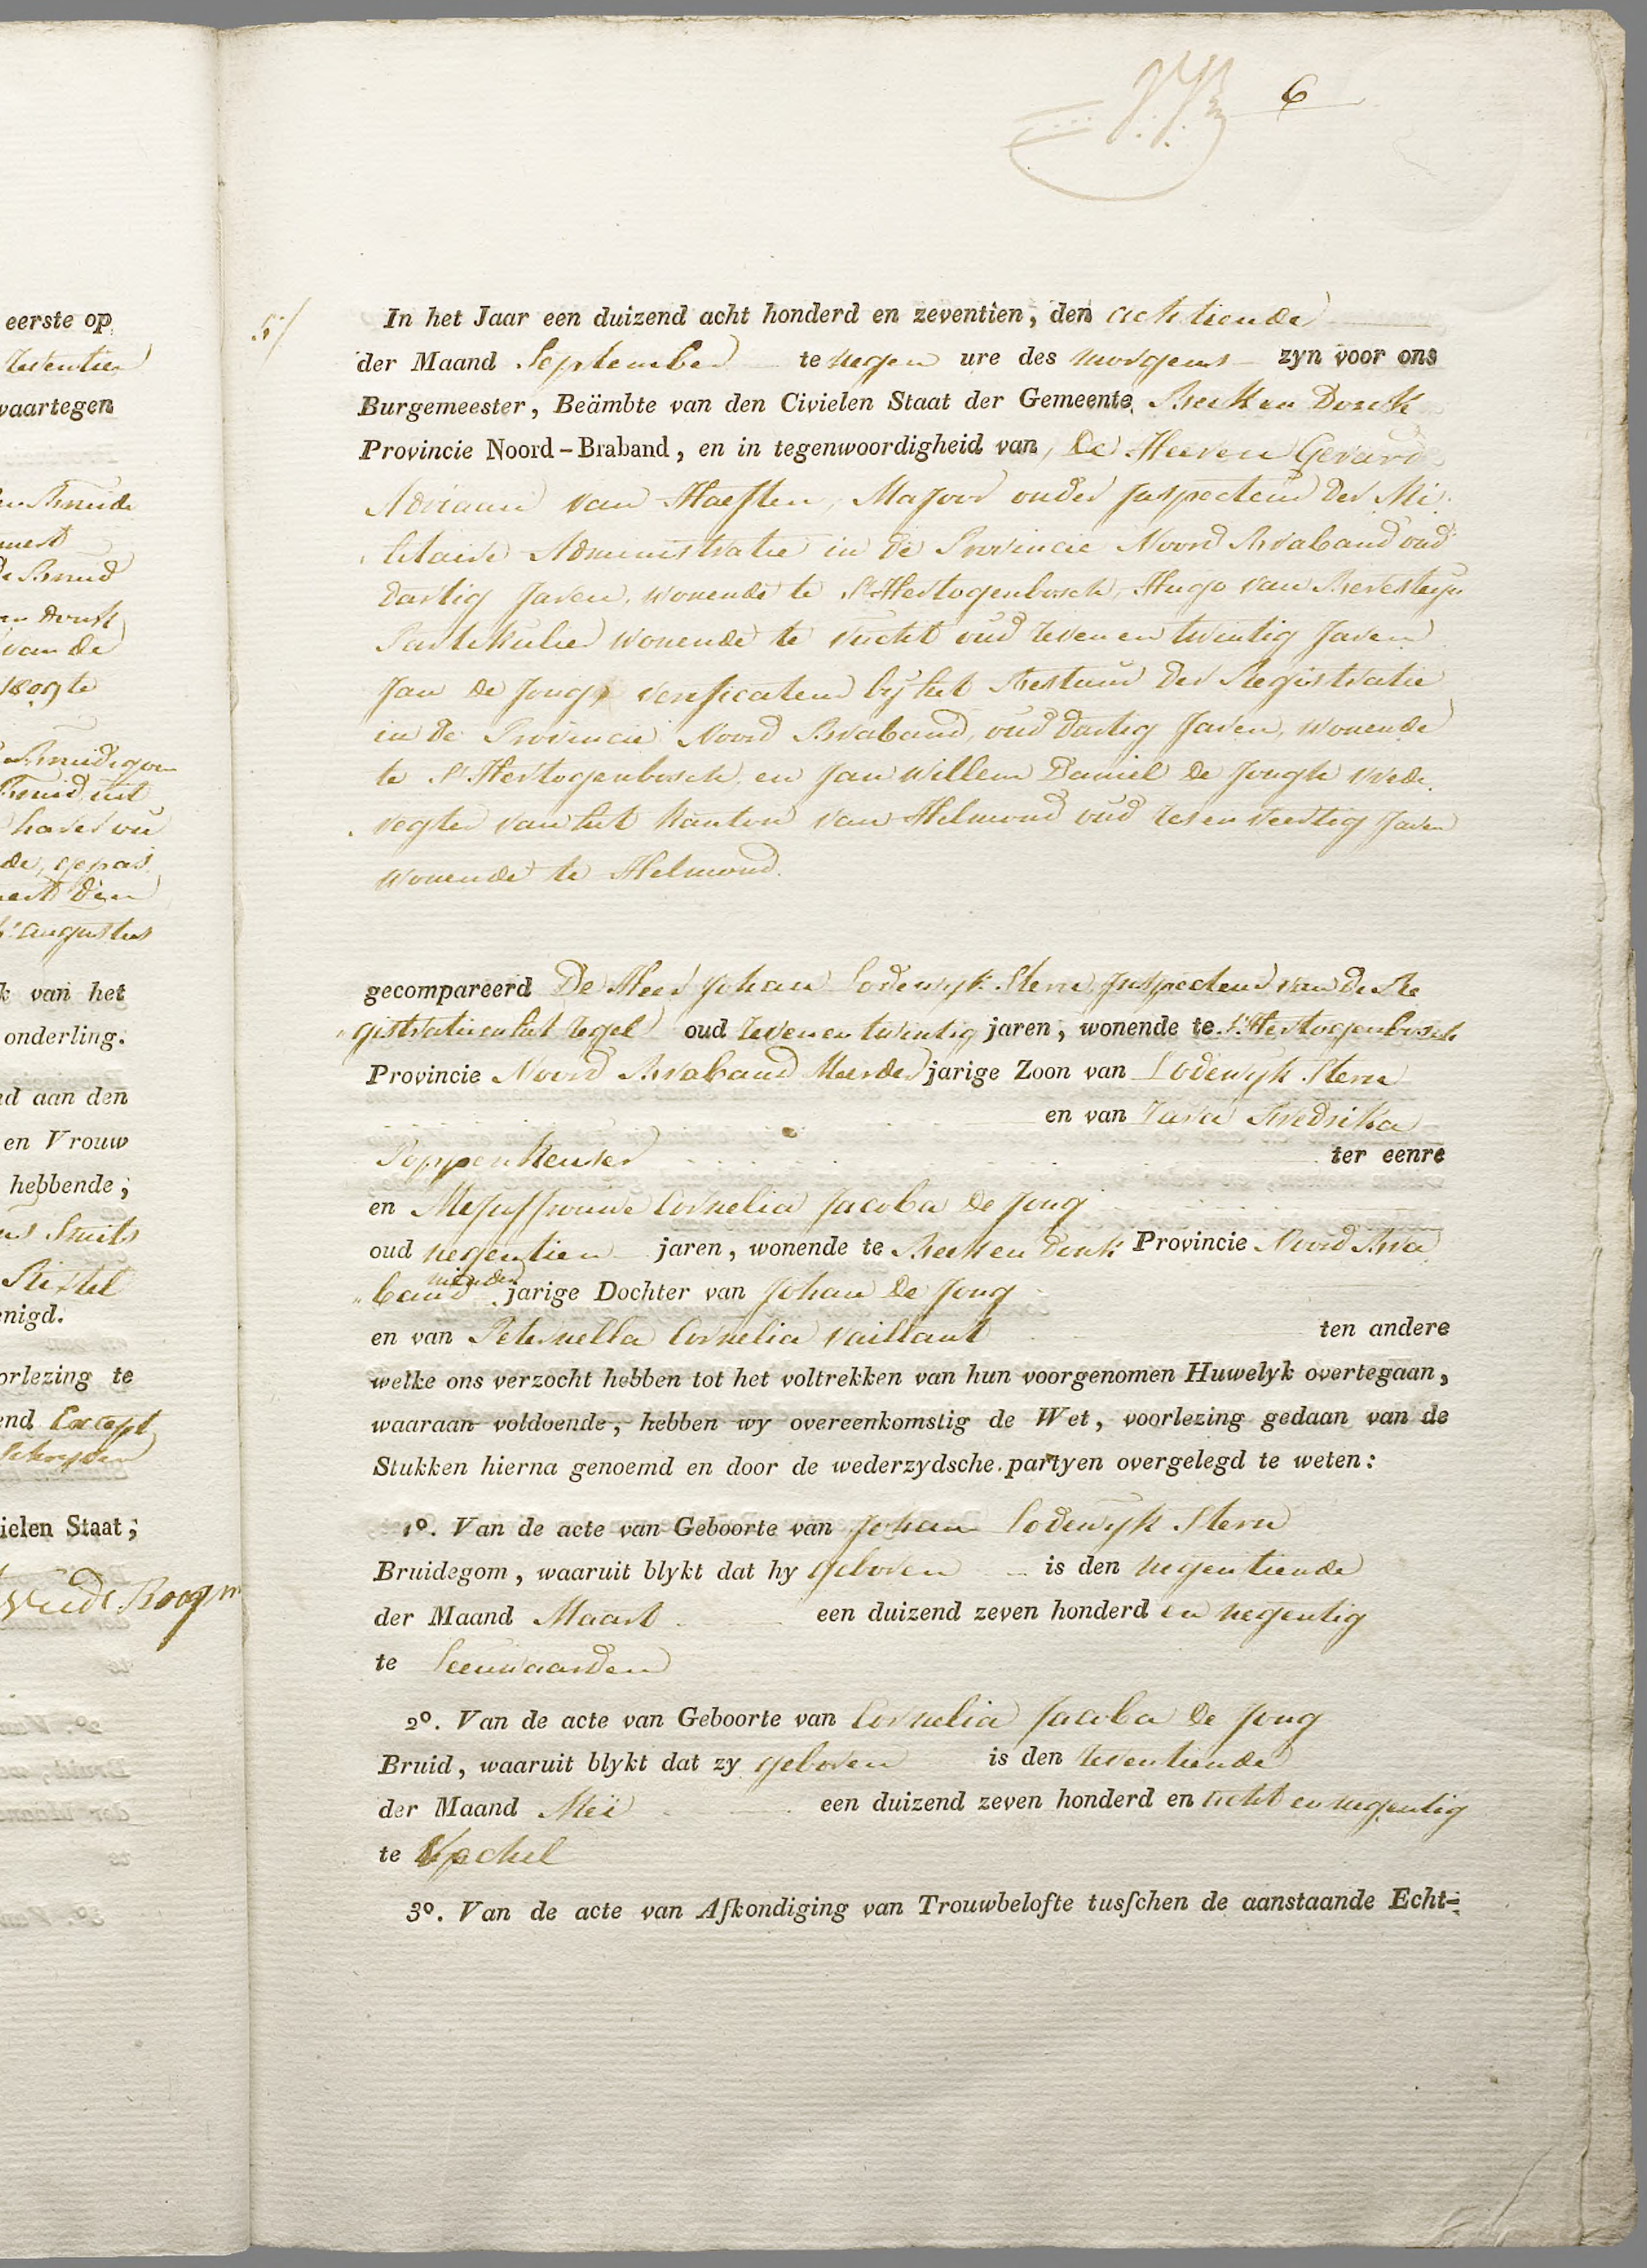 6
eerste op
zeventien
waartegen
Bruid
van de
1809 te
de, gepas
augustus
k van het
onderling.
nd aan den
en Vrouw
hebbende;
Smits
Stixtel
enigd.
orlezing te
end Except
ielen Staat;
5/
In het Jaar een duizend acht honderd en zeventien, den achtiende
der Maand September te negen ure des morgens zyn voor ons
Burgemeester, Beämbte van den Civielen Staat der Gemeente Beek en Donck
Provincie Noord-Braband, en in tegenwoordigheid van, De Heeren Gerard
Adriaan van Haeften, Majoor onder Inspecteur der Mi
litaire Administratie in de Provincie Noord Braband oud
dartig Jaren, wonende te s'Hertogenbosch, Hugo van Beresteyn
Partekulier wonende te Vucht oud zeven en twintig Jaren
Jan de Jongh verificateur bij het Bestuur der Registratie
in de Provincie Noord Braband, oud dartig Jaren, wonende
te s'Hertogenbosch, en Jan Willem Daniel de Jongh vrede
regter van het kanton van Helmond oud zes en veertig Jaren
wonende te Helmond.
gecompareerd De Heer Johan Lodewyk Stern Inspecteur van de Re
gistratie en het Zegel oud zeven en twintig jaren, wonende te s'Hertogenbosch
Provincie Noord Braband Meerder jarige Zoon van Lodewyk Stern
en van Zara Fredrika
Poppenheuser ter eenre
en Mejuffrouwe Cornelia Jacoba de Jong
oud negentien jaren, wonende te Beek en Donk Provincie Noord Bra
minder
band jarige Dochter van Johan de Jong
en van Peternella Cornelia Vaillant ten andere
welke ons verzocht hebben tot het voltrekken van hun voorgenomen Huwelyk overtegaan,
waaraan voldoende, hebben wy overeenkomstig de Wet, voorlezing gedaan van de
Stukken hierna genoemd en door de wederzydsche partyen overgelegd te weten:
1o. Van de acte van Geboorte van Johan Lodewyk Stern
Bruidegom, waaruit blykt dat hy geboren is den negentiende
der Maand Maart een duizend zeven honderd en negentig
te Leeuwaarden
2o. Van de acte van Geboorte van Cornelia Jacoba de Jong
Bruid, waaruit blykt dat zy geboren is den zeventiende
der Maand Meï een duizend zeven honderd en acht en negentig
te Vechel
3o. Van de acte van Afkondiging van Trouwbelofte tusſchen de aanstaande Echt-